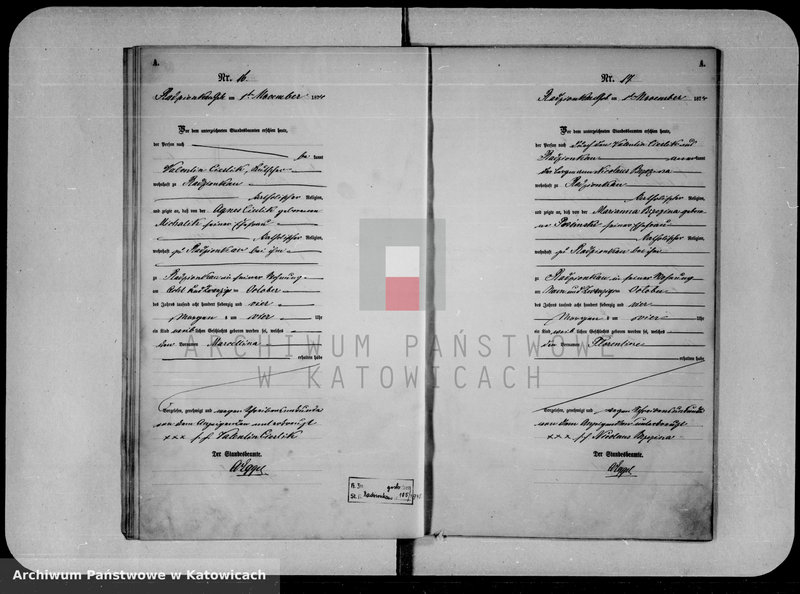 A.
Nr. 16.
Radzionkau am 1ten November 1874
Vor dem unterzeichneten Standesbeamten erschien heute,
der Person nach
be kannt
Valentin Cieslik,
wohnhaft zu Radzionkau
katholischer Religion,
und zeigte an, daß von der Agnes Cieslik geborenen
Michalik seiner Ehefrau
katholischer Religion,
wohnhaft zu Radzionkau bei ihm
zu Radzionkau in seiner Wohnung
am acht und zwanzigsten October
des Jahres tausend acht hundert siebenzig und vier
Morgens um vier Uhr
ein Kind weib lichen Geschlechts geboren worden sei, welches
den Vornamen Marcellina
erhalten habe
Vorgelesen, genehmigt und wegen Schreibensunkunde
von dem Anzeigenden unterkreuzt
xxx Valentin Cieslik
Der Standesbeamte.
A.
Nr. 17.
Radzionkau am 1ten November 1874
Vor dem unterzeichneten Standesbeamten erschien heute,
der Person nach durch den Valentin Cieslik aus
Radzionkau anerkannt
der Bergmann Nicolaus Brzezina
wohnhaft zu Radzionkau
katholischer Religion,
und zeigte an, daß von der Marianna Brzezina gebore
ne seiner Ehefrau
katholischer Religion,
wohnhaft zu Radzionkau bei ihm
zu Radzionkau in seiner Wohnung
am neun und zwanzigsten October
des Jahres tausend acht hundert siebenzig und vier
Morgens um vier Uhr
ein Kind weib lichen Geschlechts geboren worden sei, welches
den Vornamen Florentine
erhalten habe
Vorgelesen, genehmigt und wegen Schreibensunkunde
von dem Anzeigenden unterkreuzt
xxx Nicolaus Brzezina
Der Standesbeamte.
ARCHIWUM PAŃSTWOWE
W KATOWICACH
Archiwum Państwowe w Katowicach